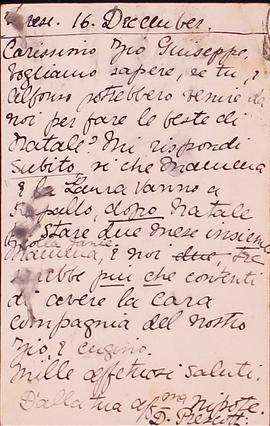 16. December.
Carissimo Zio Giuseppe,
Vogliamo sapere, se tu, e
Alfonso potrebbero venire da
noi per fare le feste di
Natale? Mi rispondi
subito, si che mamma
e la Laura vanno a
dopo Natale
stare due mese insieme
Mamma, e noi due,
più che contenti
di avere la cara
compagnia del nostro
Zio, e cugino.
Mille affetuosi saluti.
Dalla tua aff.ma Nipote.
D. Prescott.